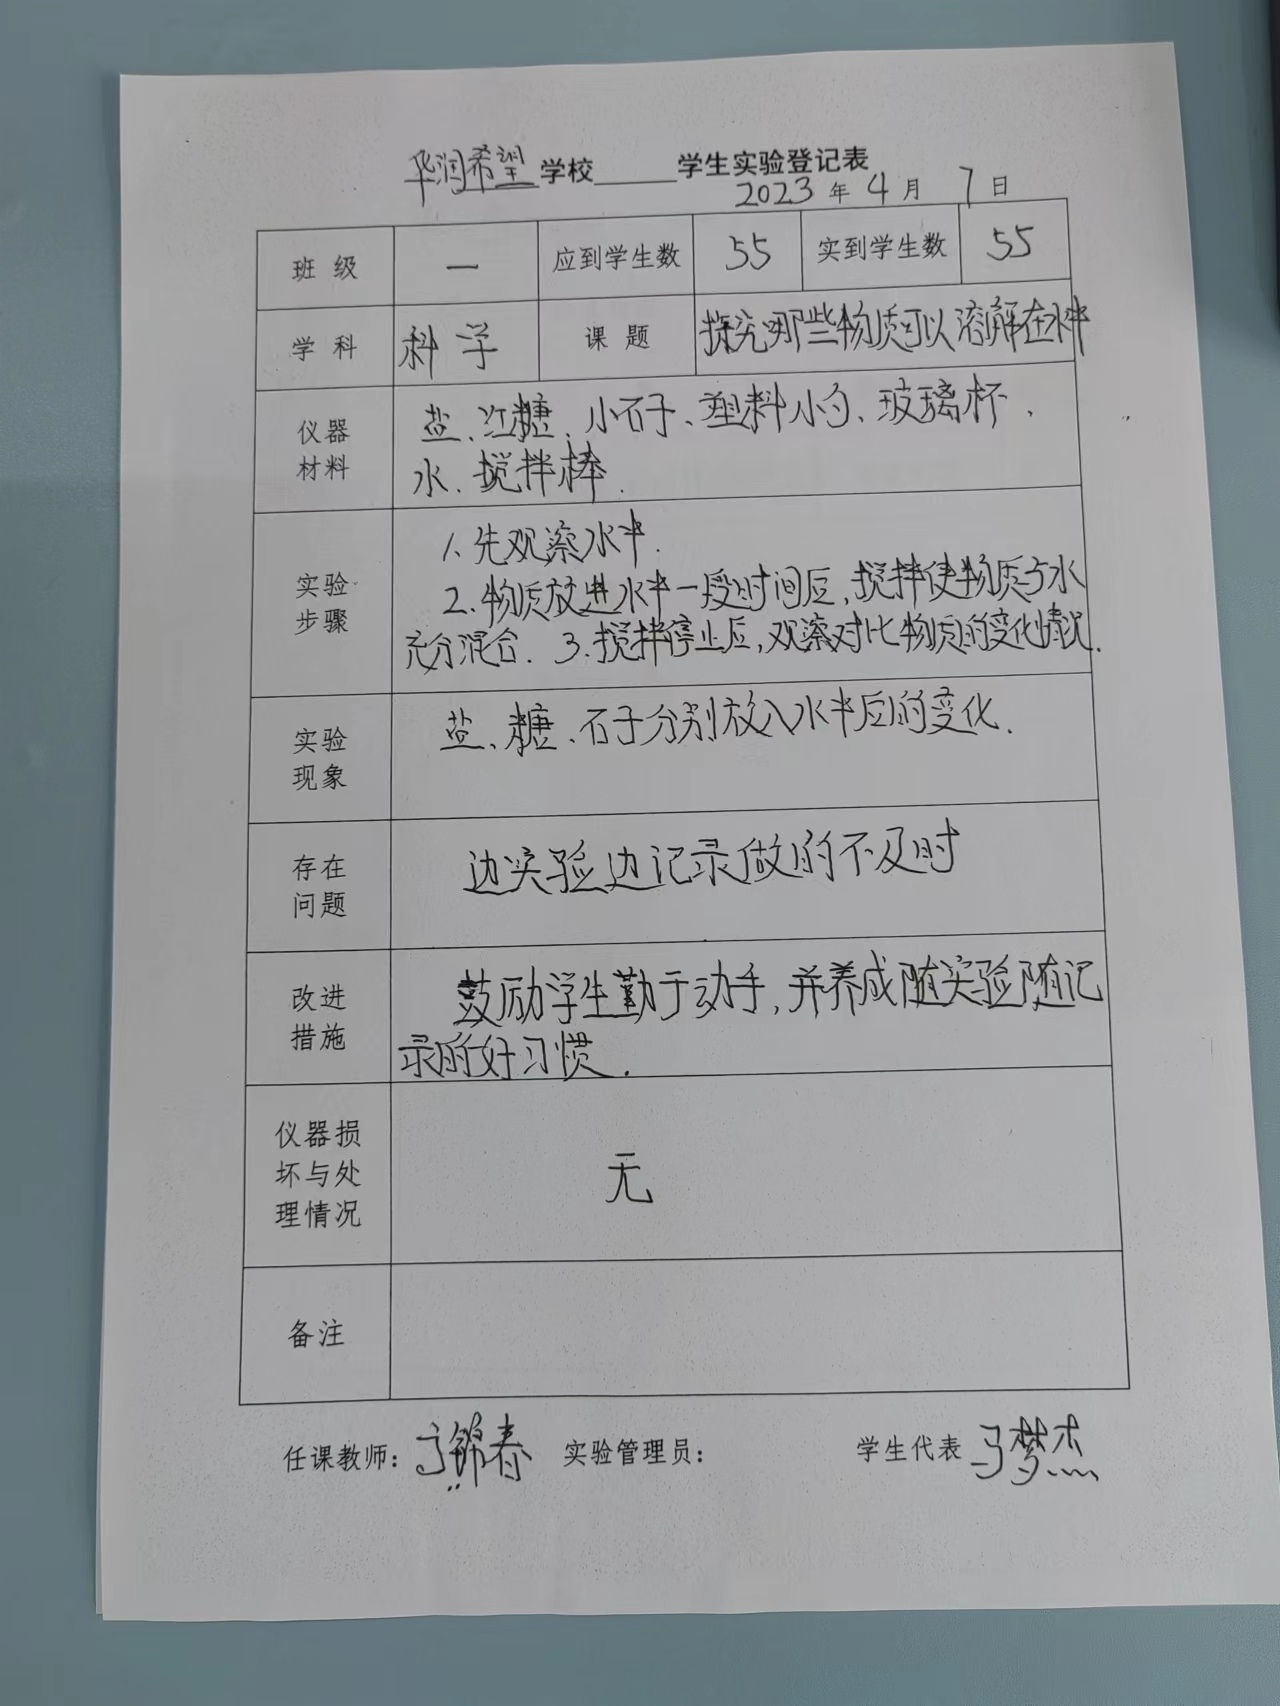 华润希望学校______学生实验登记表
2023年4月7日
班级 一 应到学生数 55 实到学生数 55
学科 科学 课题 探究哪些物质可以溶解在水中
仪器
材料
盐、红糖、小石子、塑料小勺、玻璃杯、
水、搅拌棒.
实验
步骤
1、先观察水中.
2、物质放进水中一段时间后,搅拌使物质与水
充分混合. 3、搅拌停止后,观察对比物质的变化情况.
实验
现象
盐、糖、石子分别放入水中后的变化.
存在
问题
边实验边记录做的不及时
改进
措施
鼓励学生勤于动手,并养成随实验随记
录的好习惯.
仪器损
坏与处
理情况
无
备注
任课教师:马锦春 实验管理员: 学生代表 马梦杰